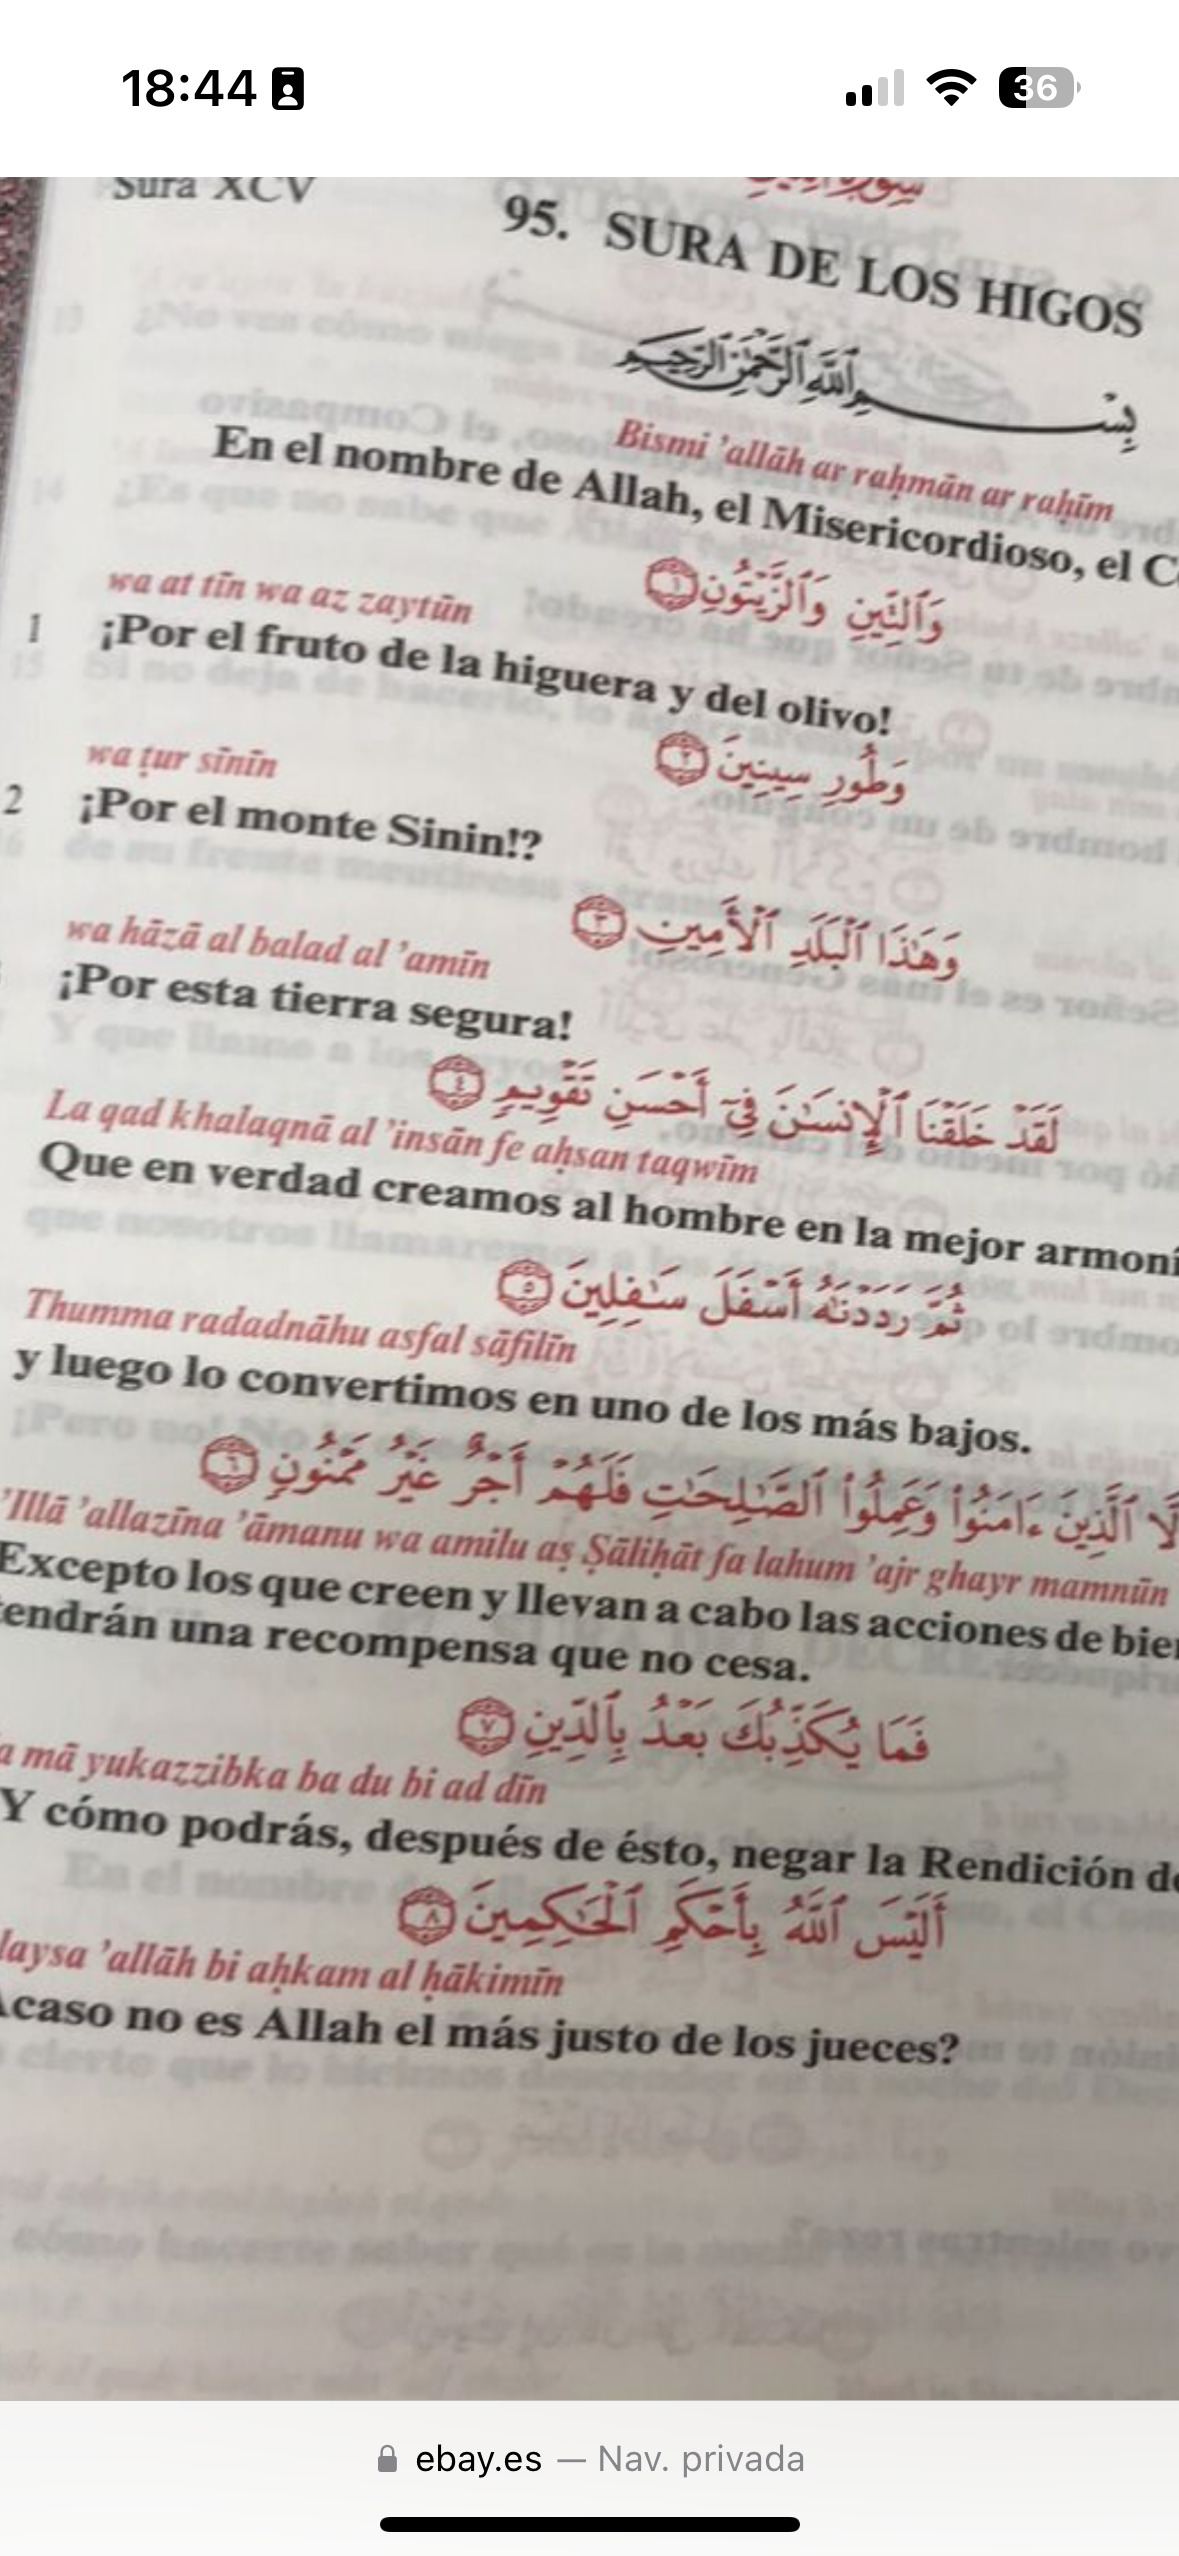 18:44
36
Sura XCV
95. SURA DE LOS HIGOS
بِسْمِ ٱللَّهِ ٱلرَّحْمَٰنِ ٱلرَّحِيمِ
Bismi ’allāh ar raḥmān ar raḥīm
En el nombre de Allah, el Misericordioso, el C
وَٱلتِّينِ وَٱلزَّيْتُونِ ١
wa at tīn wa az zaytūn
1 ¡Por el fruto de la higuera y del olivo!
وَطُورِ سِينِينَ ٢
wa ṭur sīnīn
2 ¡Por el monte Sinin!?
وَهَٰذَا ٱلْبَلَدِ ٱلْأَمِينِ ٣
wa hāẓā al balad al ’amīn
¡Por esta tierra segura!
لَقَدْ خَلَقْنَا ٱلْإِنسَٰنَ فِىٓ أَحْسَنِ تَقْوِيمٍ ٤
La qad khalaqnā al ’insān fe aḥsan taqwīm
Que en verdad creamos al hombre en la mejor armoní
ثُمَّ رَدَدْنَٰهُ أَسْفَلَ سَٰفِلِينَ ٥
Thumma radadnāhu asfal sāfilīn
y luego lo convertimos en uno de los más bajos.
لَّا ٱلَّذِينَ ءَامَنُوا۟ وَعَمِلُوا۟ ٱلصَّٰلِحَٰتِ فَلَهُمْ أَجْرٌ غَيْرُ مَمْنُونٍ ٦
’Illā ’allazīna ’āmanu wa amilu aṣ Ṣāliḥāt fa lahum ’ajr ghayr mamnūn
Excepto los que creen y llevan a cabo las acciones de bien
tendrán una recompensa que no cesa.
فَمَا يُكَذِّبُكَ بَعْدُ بِٱلدِّينِ ٧
a mā yukazzibka ba du bi ad dīn
Y cómo podrás, después de ésto, negar la Rendición de
أَلَيْسَ ٱللَّهُ بِأَحْكَمِ ٱلْحَٰكِمِينَ ٨
laysa ’allāh bi aḥkam al ḥākimīn
Acaso no es Allah el más justo de los jueces?
ebay.es — Nav. privada